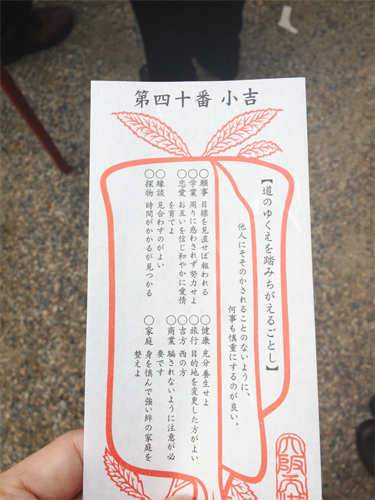 第四十番 小吉
【道のゆくえを踏みちがえるごとし】
他人にそそのかされることのないように、
何事も慎重にするのが良い。
○願事 目標を見直せば報われる
○学業 周りに惑わされず努力せよ
○恋愛 お互いを信じ和やかに愛情
を育てよ
○縁談 見合わすのがよい
○探物 時間がかかるが見つかる
○健康 充分養生せよ
○旅行 目的地を変更した方がよい
○吉方 西の方
○商業 騙されないように注意が必
要です
○家庭 身を慎んで強い絆の家庭を
整えよ